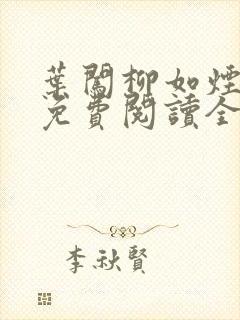 葉闖柳如煙
免費閱讀全
李秋賢